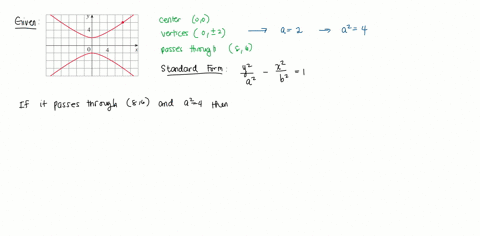 Given:
y
4
0
4
x
center (0,0)
vertices (0, ±2) → a = 2 → a² = 4
passes through (8, 6)
Standard Form: y²/a² − x²/b² = 1
If it passes through (8,6) and a²=4 then